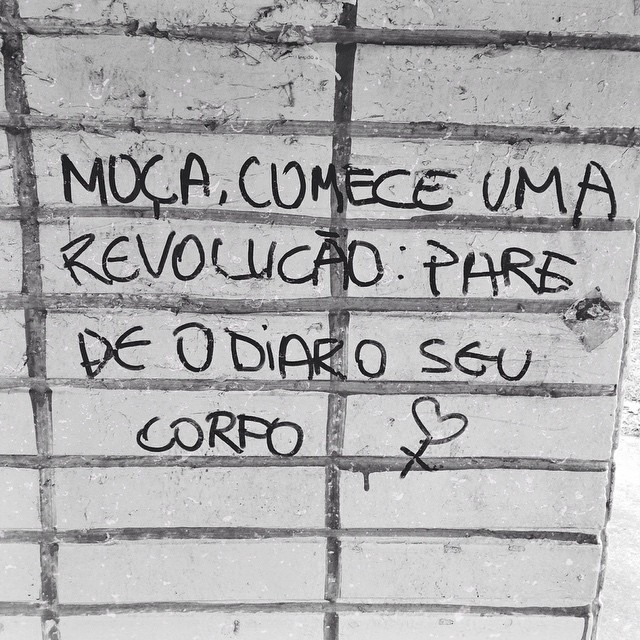 MOÇA, COMECE UMA
REVOLUÇÃO: PARE
DE ODIAR O SEU
CORPO